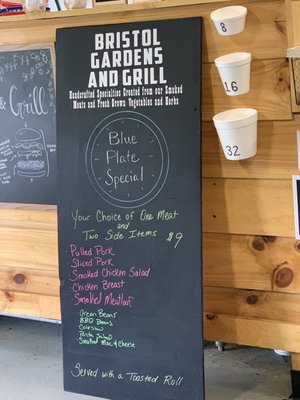 BRISTOL
GARDENS
AND GRILL
Handcrafted Specialties Created from our Smoked
Meats and Fresh Grown Vegetables and Herbs
Blue
Plate
Special
Your Choice of One Meat
and
Two Side Items $9
Pulled Pork
Sliced Pork
Smoked Chicken Salad
Chicken Breast
Smoked Meatloaf
Green Beans
BBQ Beans
Coleslaw
Pasta Salad
Smoked Mac & Cheese
Served with a Toasted Roll
& Grill
8
16
32